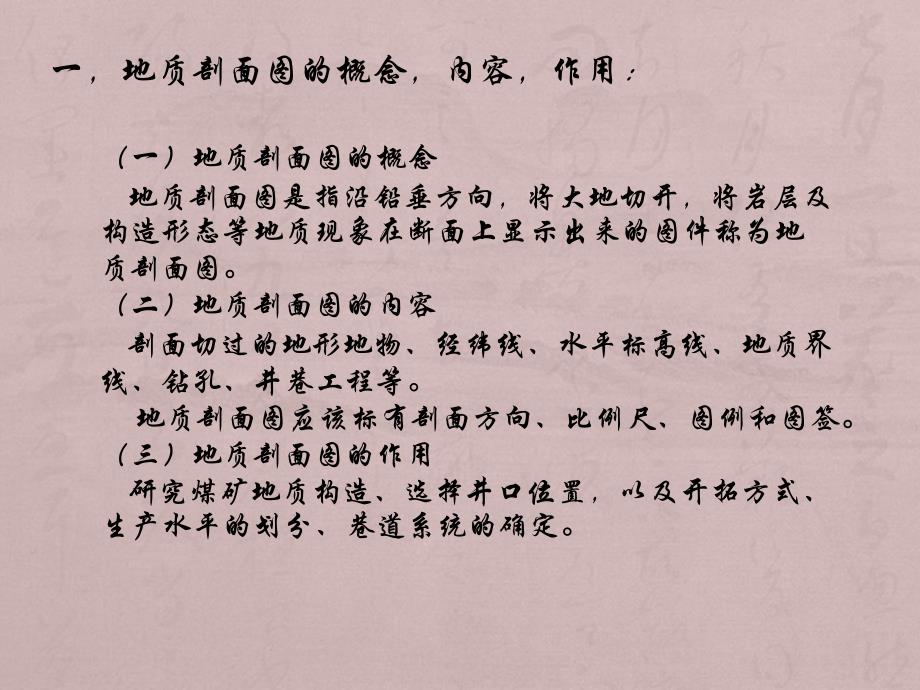 一，地质剖面图的概念，内容，作用：
（一）地质剖面图的概念
地质剖面图是指沿铅垂方向，将大地切开，将岩层及
构造形态等地质现象在断面上显示出来的图件称为地
质剖面图。
（二）地质剖面图的内容
剖面切过的地形地物、经纬线、水平标高线、地质界
线、钻孔、井巷工程等。
地质剖面图应该标有剖面方向、比例尺、图例和图签。
（三）地质剖面图的作用
研究煤矿地质构造、选择井口位置，以及开拓方式、
生产水平的划分、巷道系统的确定。